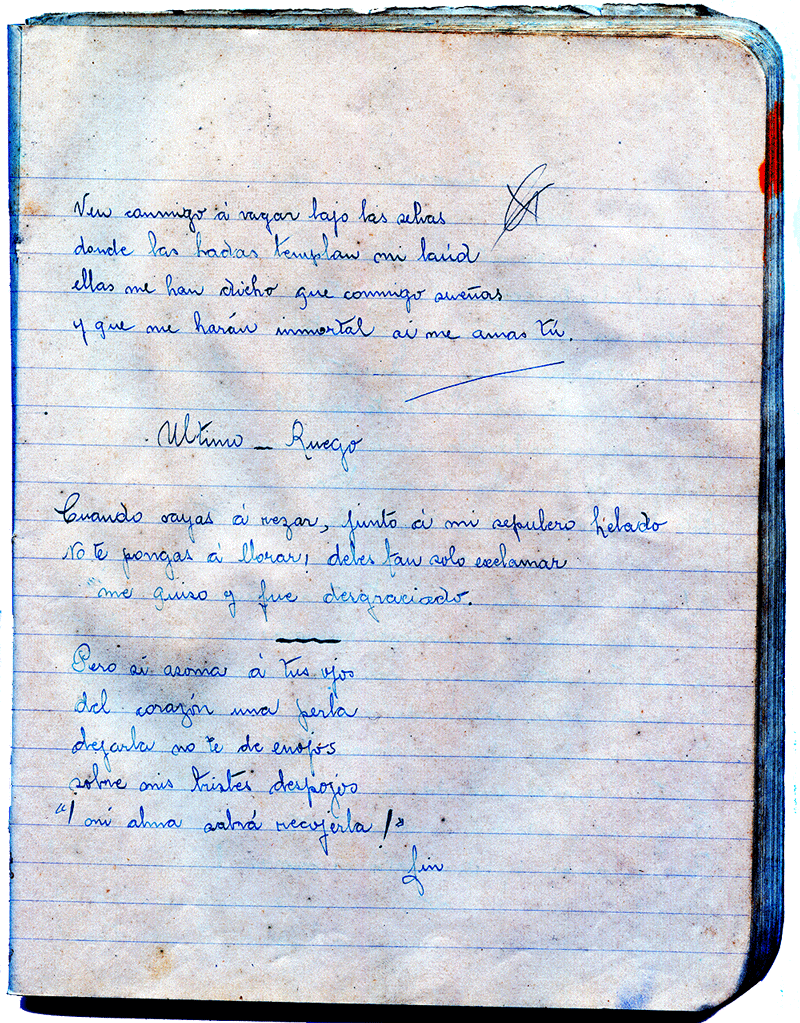 Ven conmigo á vagar bajo las selvas
donde las hadas templan mi laúd
ellas me han dicho que conmigo sueñas
y que me harán inmortal si me amas tú.
Ultimo _ Ruego
Cuando vayas á rezar, junto á mi sepulcro helado
No te pongas á llorar, debes tan solo exclamar
"me quiso y fue desgraciado.
Pero si asoma á tus ojos
del corazón una perla
dejarla no te de enojos
sobre mis tristes despojos
"¡ mi alma sabrá recojerla !"
fin